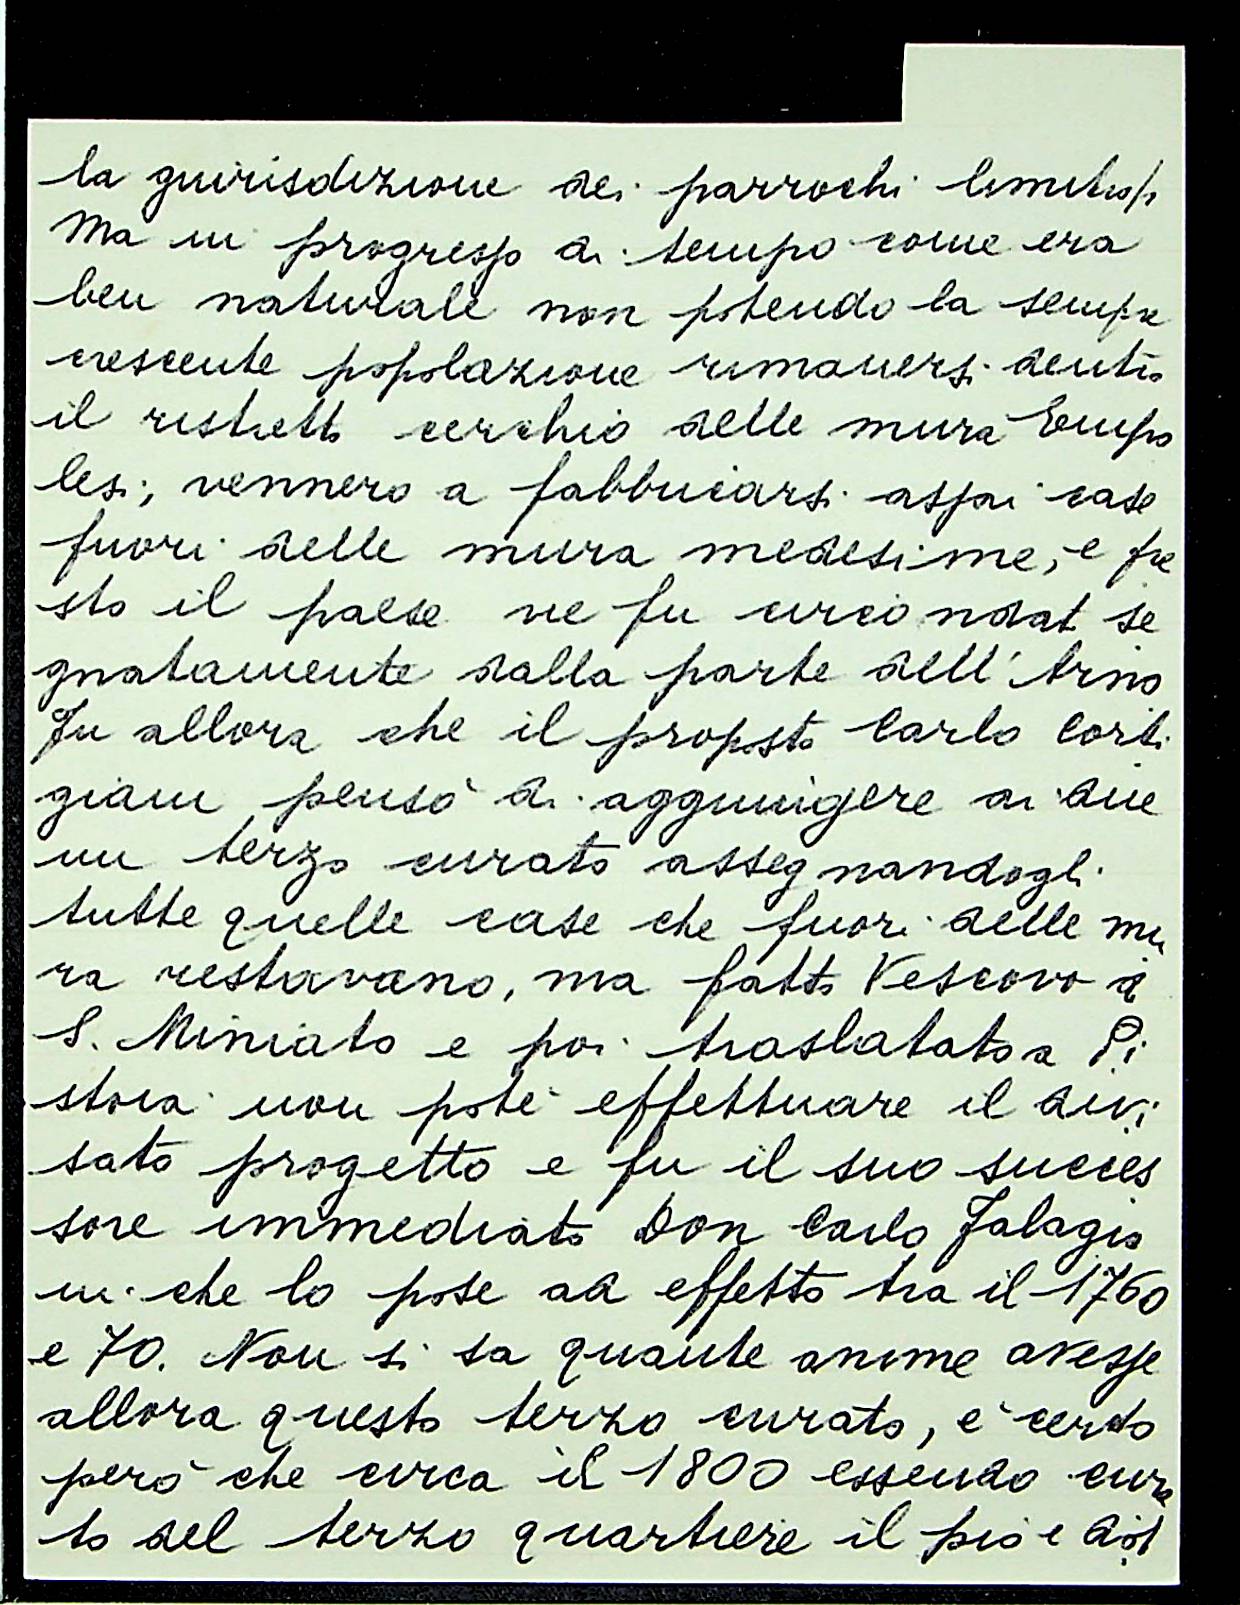 la guirisdizione dei parrochi limitrofi
Ma in progresso di tempo come era
ben naturale non potendo la sempre
crescente popolazione rimanersi dentro
il ristretto cerchio delle mura Empo
lesi, vennero a fabbricarsi assai case
fuori delle mura medesime, e pre
sto il paese ne fu circondat se
gnatamente dalla parte dell'Arno
Fu allora che il proposto Carlo Corti
giani pensò di aggiungere ai due
un terzo curato assegnandogli
tutte quelle case che fuori delle mu
ra restavano, ma fatto Vescovo di
S. Miniato e poi traslatato a Pi
stoia non potè effettuare il divi
sato progetto e fu il suo succes
sore immediato Don Carlo Falagia
ni che lo pose ad effetto tra il 1760
e 70. Non si sa quante anime avesse
allora questo terzo curato, è certo
però che circa il 1800 essendo cura
to del terzo quartiere il pio e